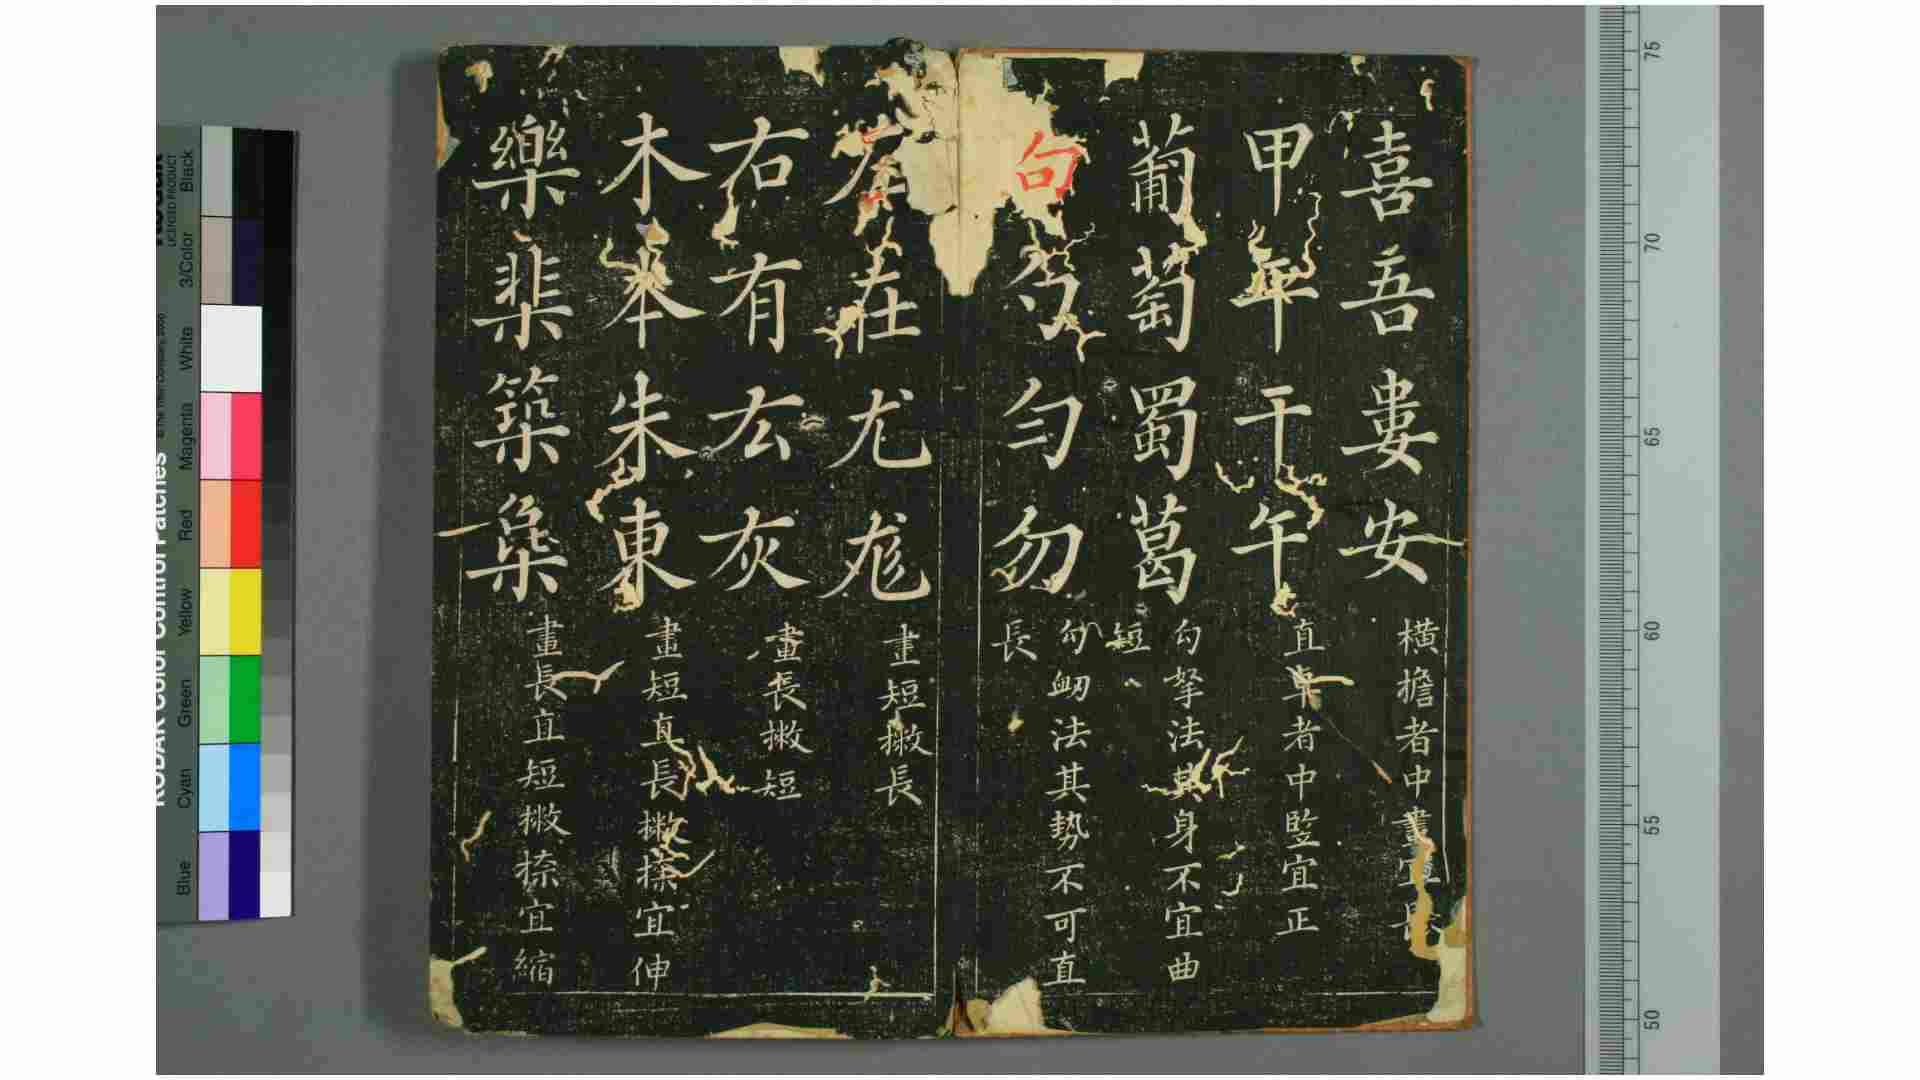 喜吾婁安
橫擔者中畫宜長
甲年干午
直卓者中竪宜正
葡萄蜀葛
勾拏法其身不宜曲
短
句勾勻勿
勾衂法其勢不可直
長
左在尤尨
畫短撇長
右有厷灰
畫長撇短
木本朱東
畫短直長撇捺宜伸
樂棐築
畫長直短撇捺宜縮
KODAK Color Control Patches
LICENSED PRODUCT
Blue
Cyan
Green
Yellow
Red
Magenta
White
3/Color
Black
75
70
65
60
55
50